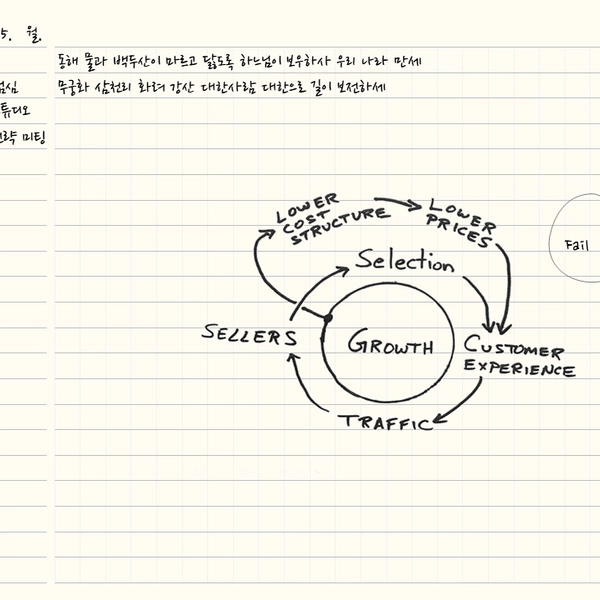 5. 월.
점심
튜디오
전략 미팅
동해 물과 백두산이 마르고 닳도록 하느님이 보우하사 우리 나라 만세
무궁화 삼천리 화려 강산 대한사람 대한으로 길이 보전하세
LOWER
COST
STRUCTURE
LOWER
PRICES
Selection
SELLERS
GROWTH
CUSTOMER
EXPERIENCE
TRAFFIC
Fail